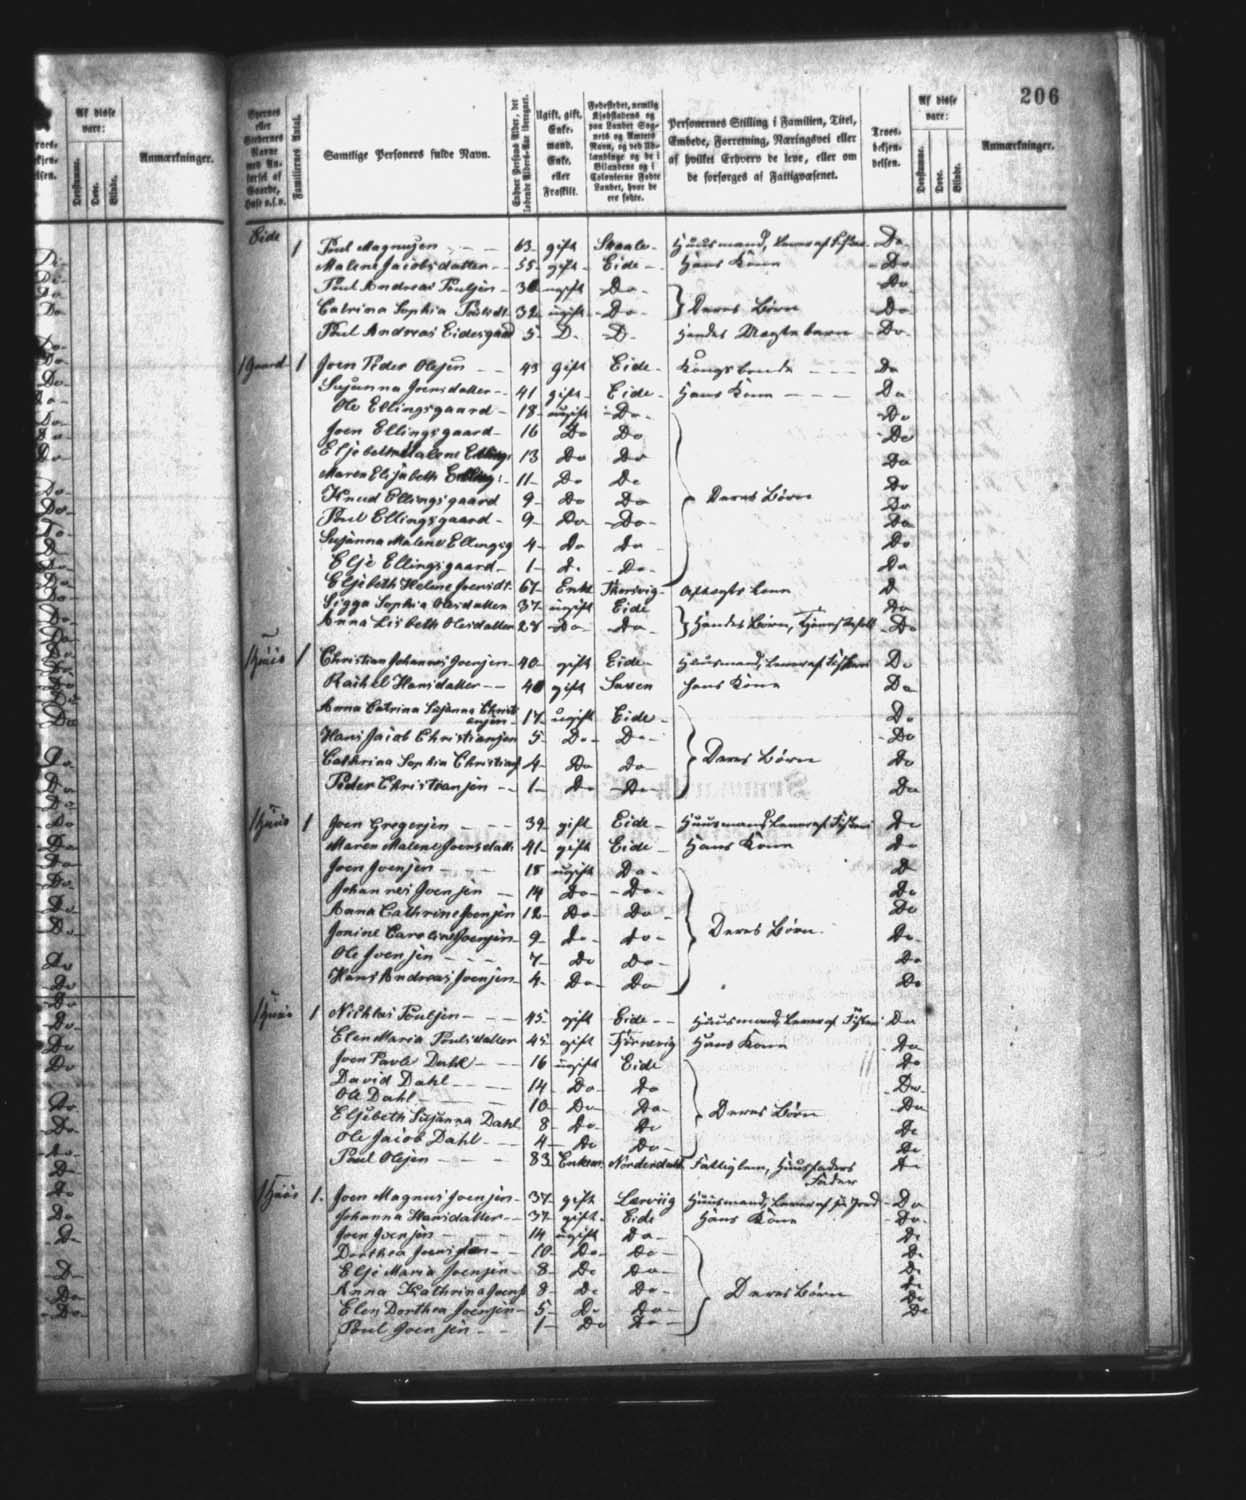 206
Af disse være:
Anmærkninger.
Døvstumme. Døve. Blinde.
Byernes eller Stedernes Navne med Antallet af Gaarde, Huse o.s.v.
Familiernes Antal.
Samtlige Personers fulde Navn.
Enhver Persons Alder, det løbende Alders-Aar iberegnet.
Ugift, gift, Enkemand, Enke, eller Fraskilt.
Fødestedet, nemlig Kjøbstadens og paa Landet Sognets og Amtets Navn, og ved Udlændinge og de i Bilandene og i Colonierne Fødte Landet, hvor de ere fødte.
Personernes Stilling i Familien, Titel, Embede, Forretning, Næringsvei eller af hvilket Erhverv de leve, eller om de forsørges af Fattigvæsenet.
Troesbekjendelsen.
Af disse være:
Døvstumme. Døve. Blinde.
Anmærkninger.
Eide 1 Poul Magnusen 63 gift Skaale Huusmand, Lever af Fiskeri Do
Malene Jacobsdatter 55 gift Eide Hans Kone Do
Poul Andreas Poulsen ugift Do Do
Catrina Sophia Poulsdt 32 ugift Do } Deres Børn Do
Poul Andreas Eidesgaard 5 D. D. Hendes Uægte barn Do
1 Gaard 1 Joen Peder Olesen 43 gift Eide Kongsbonde Do
Susanna Joensdatter 41 gift Eide Hans Kone Do
Ole Ellingsgaard 18 ugift Do Do
Joen Ellingsgaard 16 Do Do Do
Elsebeth Malene Ellings 13 Do Do Do
Maren Elisabeth Ellings 11 Do Do Do
Knud Ellingsgaard 9 Do Do } Deres Børn Do
Poul Ellingsgaard 9 Do Do Do
Susanna Malene Ellingsg 4 Do Do Do
Else Ellingsgaard 1 Do Do Do
Elsebeth Helene Joensdt. 67 Enke Aftægts D
Sigga Sophia Olesdatter 37 ugift Eide Do
Anna Lisbeth Olesdatter Do Do } Hendes Børn, Do
1 Huus 1 Christian Johannes Joensen 40 gift Eide Huusmand, Lever af Fiskeri Do
Rachel Hansdatter gift Saxen Hans Kone Do
Anna Catrina Susanna Christiansen 17 ugift Eide Do
Hans Jacob Christiansen 5 Do Do Do
Cathrina Sophia Christians 4 Do Do } Deres Børn Do
Peder Christiansen 1 Do Do Do
1 Huus 1 Joen Gregersen 39 gift Eide Huusmand, Lever af Fiskeri Do
Maren Malene Joensdatt 41 gift Eide Hans Kone Do
Joen Joensen 18 ugift Do D
Johannes Joensen 14 Do Do Do
Anna Cathrine Joensen 12 Do Do Do
Jonine Caroline Joensen 9 Do Do } Deres Børn Do
Ole Joensen 7 Do Do Do
Hans Andreas Joensen 4 Do Do Do
1 Huus 1 Nichlas Poulsen 45 gift Eide Huusmand, Lever af Fiskeri Do
Elen Maria Poulsdatter 45 gift Hans Kone Do
Joen Pavle Dahl 16 ugift Eide Do
David Dahl 14 Do Do Do
Ole Dahl 10 Do Do Do
Elsebeth Susanna Dahl 8 Do Do } Deres Børn Do
Ole Jacob Dahl 4 Do Do Do
Poul Olesen 83 Enkem. Norderdahl Fattiglem, Huusfaders Fader Do
1 Huus 1. Joen Magnus Joensen 37 gift Lervig Huusmand, Lever af sin Jord Do
Johanna Hansdatter 37 gift Eide Hans Kone Do
Joen Joensen 14 ugift Do Do
Dorthea Joensen 10 Do Do Do
Else Maria Joensen 8 Do Do Do
Anna Kathrina Joens 8 Do Do } Deres Børn Do
Elen Dorthea Joensen 5 Do Do Do
Poul Joensen 1 Do Do